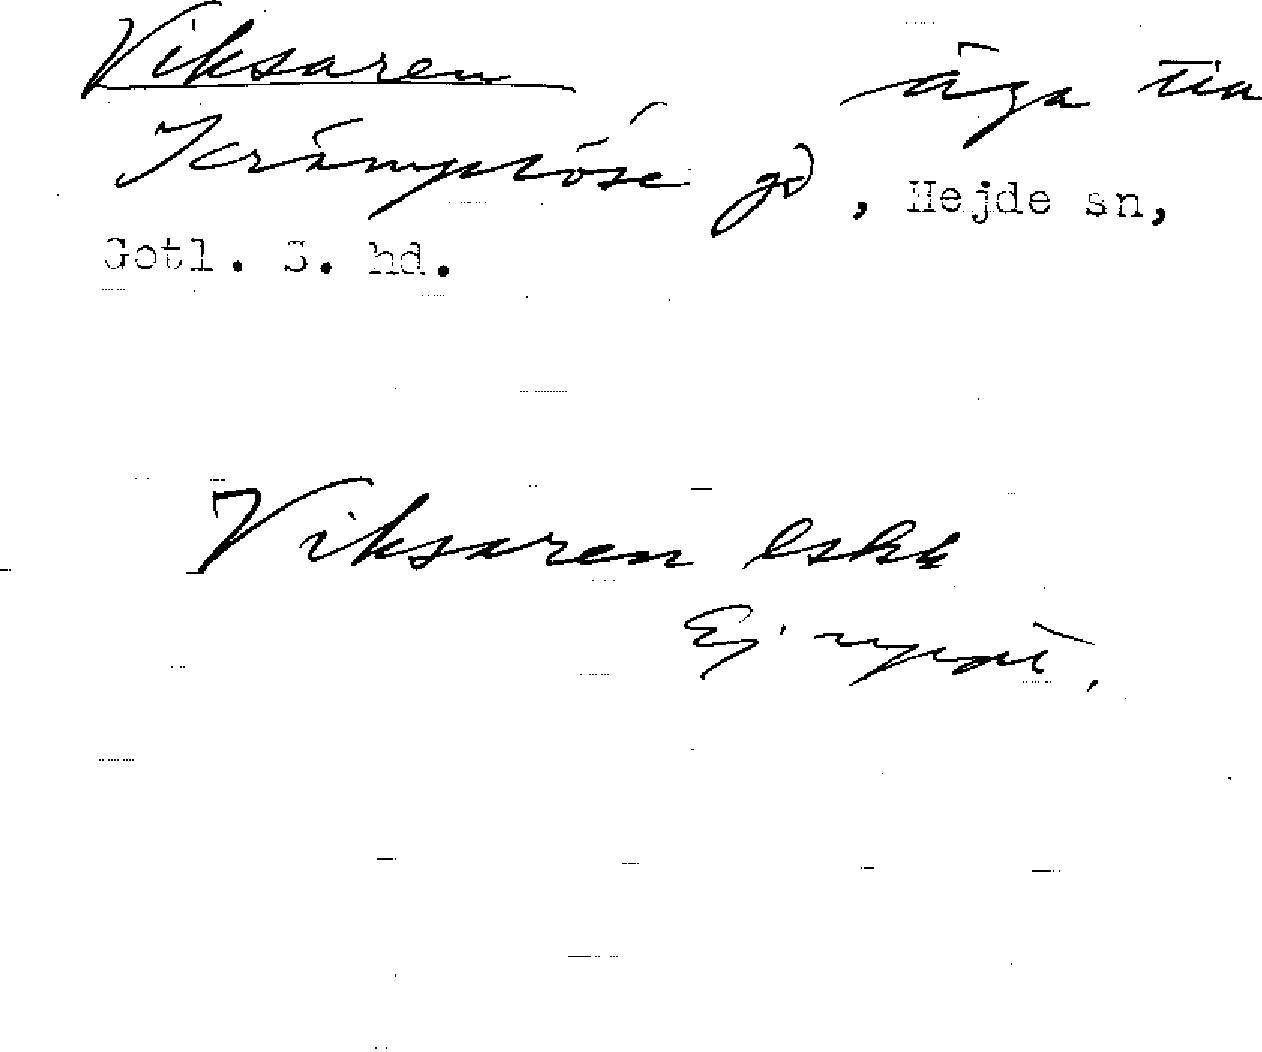 Viksaren äga till
Krämplöse gd, Hejde sn,
Gotl. S. hd.
Viksaren eskk
Ej uppt.